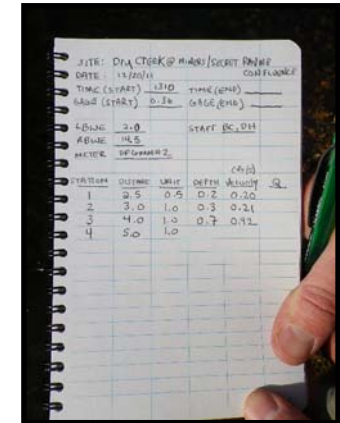 SITE: DRY CREEK @ MINERS/SECRET RAVINE
CONFLUENCE
DATE: 12/20/11
TIME (START) 1310 TIME (END)
GAGE (START) 0.36 GAGE (END)
LBWE 2.0 STAFF BC, DH
RBWE 14.5
METER
(ft/s)
STATION DISTANCE UNIT DEPTH Velocity Q
1 2.5 0.5 0.2 0.20
2 3.0 1.0 0.3 0.21
3 4.0 1.0 0.7 0.42
4 5.0 1.0